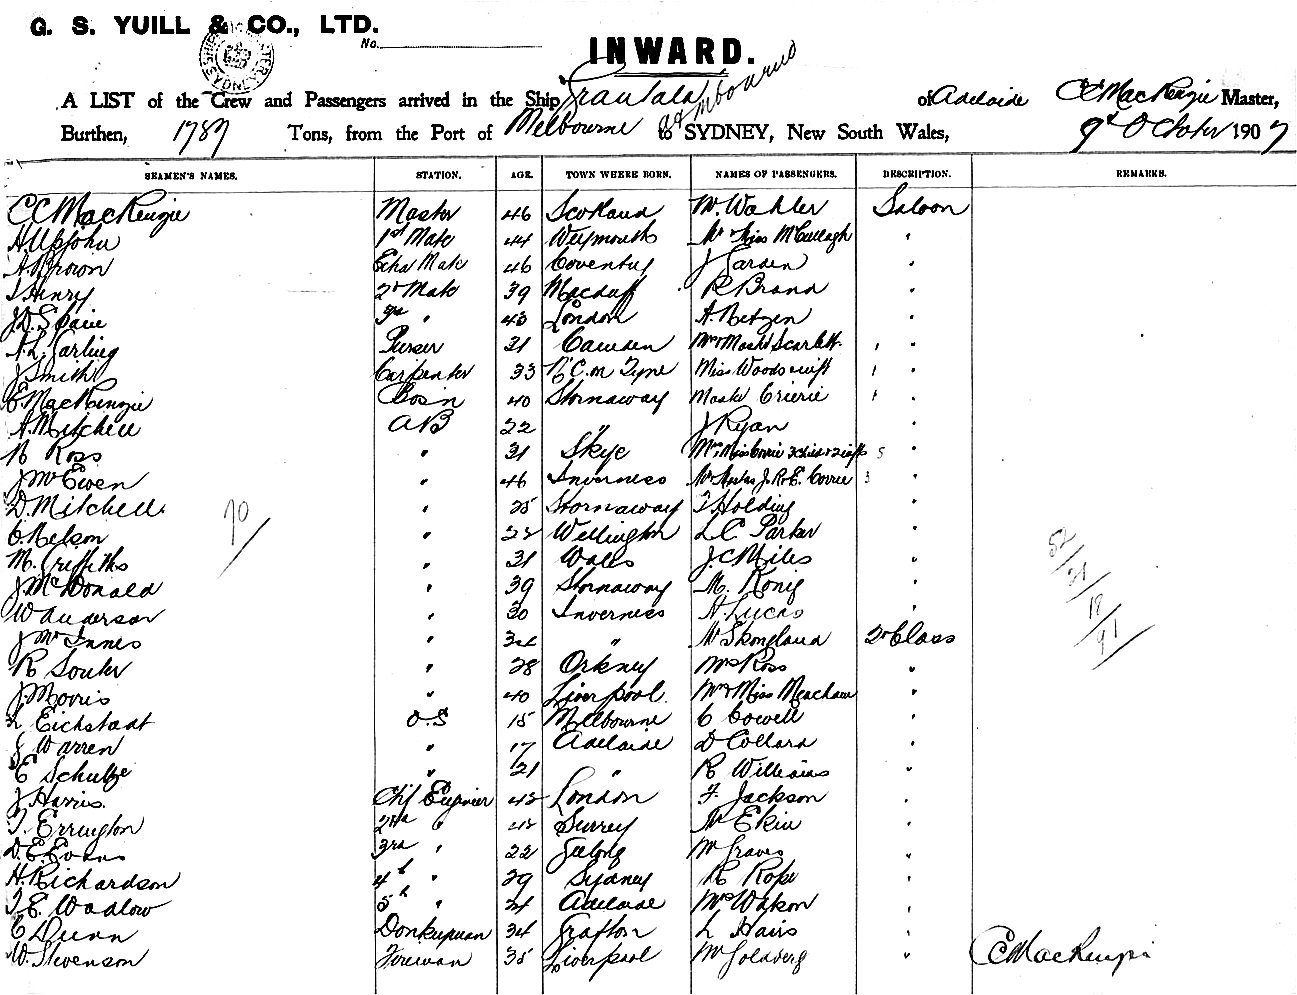 G. S. YUILL & CO., LTD.
No.
INWARD.
A LIST of the Crew and Passengers arrived in the Ship Grantala of Adelaide CC MacKenzie Master,
Burthen, 1787 Tons, from the Port of Melbourne to SYDNEY, New South Wales, 9th October 1907
SEAMEN'S NAMES. STATION. AGE. TOWN WHERE BORN. NAMES OF PASSENGERS. DESCRIPTION. REMARKS.
CC MacKenzie Master 46 Scotland Saloon
H. Upjohn 1st Mate 44 Weymouth Mr Miss McCullagh "
A. Brown Extra Mate 46 Coventry J "
J Henry 2d Mate 39 Macduff R Brand "
3rd " 43 London "
A. L. Carling Purser 31 Camden Mrs Mastr Scarlett "
J Smith Carpenter 33 N. C. on Tyne Miss Woods "
C. MacKenzie Bosin 40 Stornaway Mastr "
A. Mitchell AB 22 " J Ryan "
N Ross " 31 Skye 5 "
J McEwen " 46 Inverness Corrie 3 "
D. Mitchell " 25 Stornaway T Holding "
C. Nelson " Wellington L C Parker "
M. Griffiths " 31 Wales J. C Miles "
J. McDonald " 39 Stornaway M. Konig "
W Anderson " 30 Inverness A. Lucas "
J McInnes " " Mr Skongland 2d Class
R Souter " 28 Orkney Mrs Ross "
J. Morris " 40 Liverpool Mr Miss Meacham "
L Eichstadt O.S 18 Melbourne C Cowell "
J Warren " 17 Adelaide D Collard "
E Schultze " 21 " R Williams "
J Harris. Chif Enginier London F. Jackson "
J. Errington 2nd " Surrey Mr Ekin "
D. E. Evans 3rd " 22 Geelong Mr Graves "
H. Richardson 4th " 29 Sydney R Rope "
T. E. Wadlow 5th " 24 Adelaide Mrs Watson "
C Dunn Donkeyman 34 Grafton L Hairs "
W. Stevenson Fireman 35 Liverpool Mr Goldberg " CC MacKenzie
70
52
21
18
91